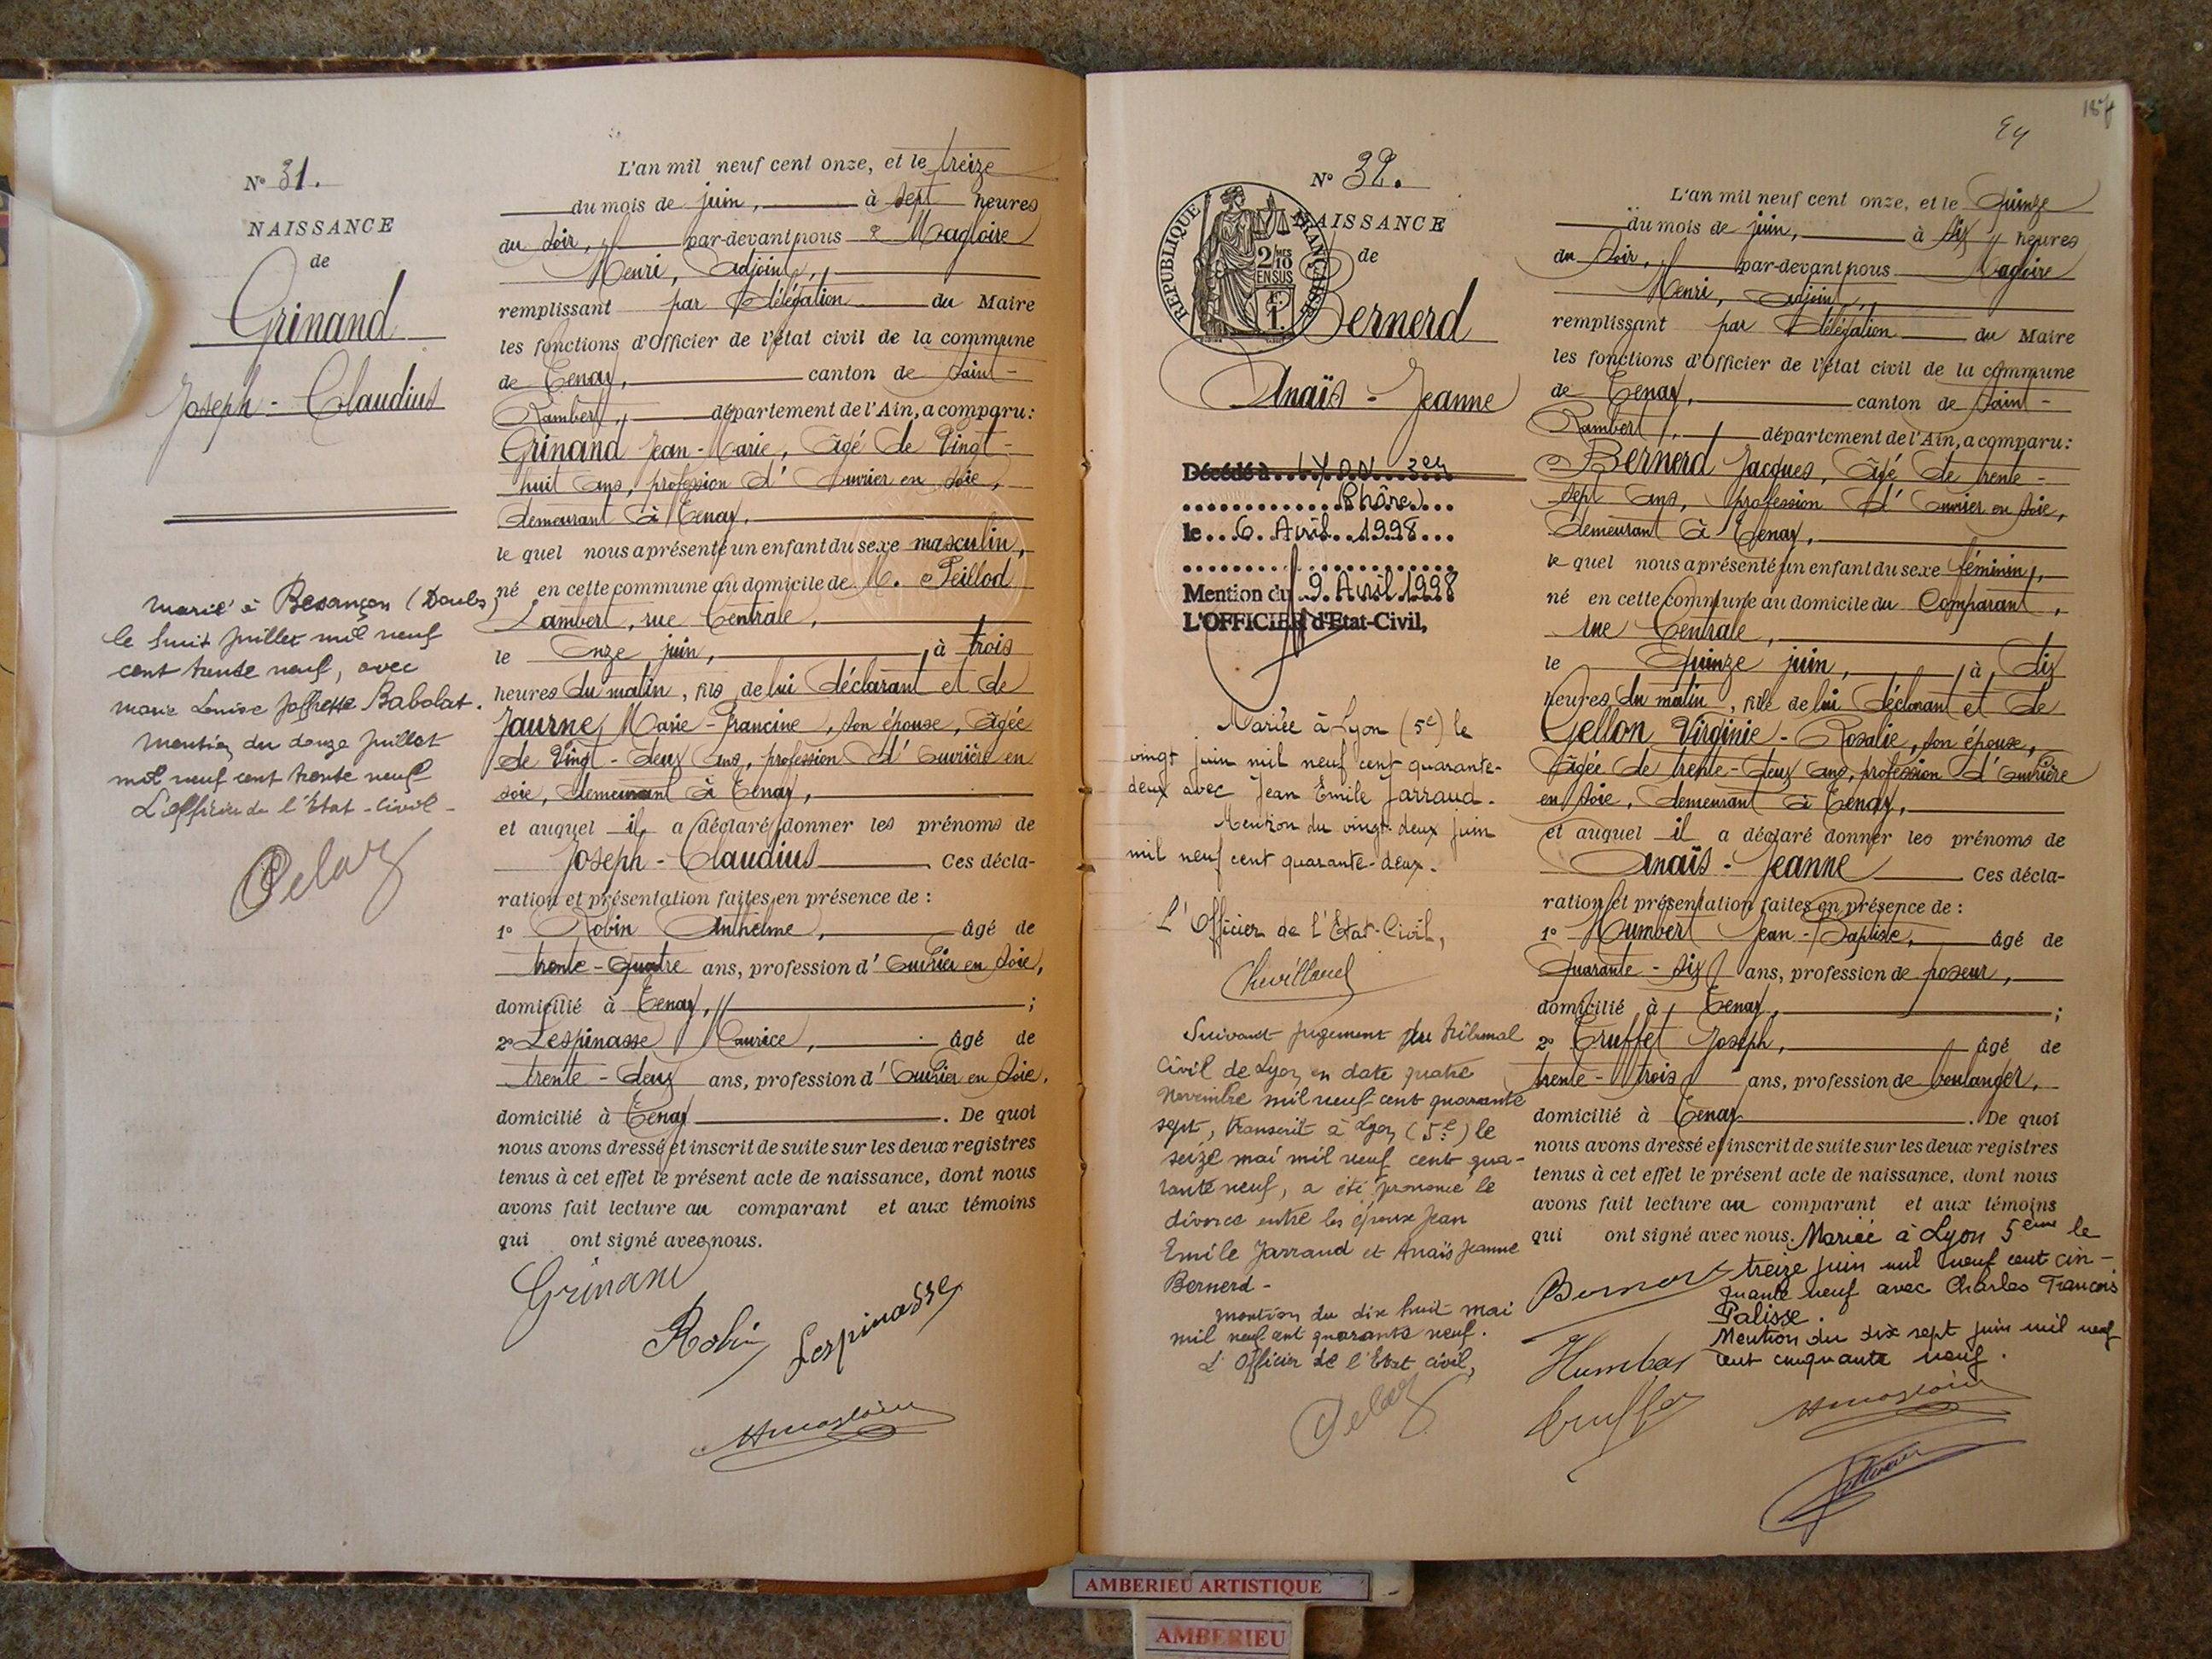 N° 31.
NAISSANCE
de
Grinand
Joseph - Claudius
Marié à Besançon (Doubs)
le huit juillet mil neuf
cent trente neuf, avec
Marie Louise Babolat.
Mention du douze juillet
mil neuf cent trente neuf
L'officier de l'Etat-civil
Delaz
L'an mil neuf cent onze, et le treize
du mois de juin, à sept heures
du soir, par-devant nous Magloire
Henri, Adjoint,
remplissant par délégation du Maire
les fonctions d'Officier de l'état civil de la commune
de Tenay, canton de Saint-
Rambert, département de l'Ain, a comparu:
Grinand Jean-Marie, âgé de vingt-
huit ans, profession d'ouvrier en soie,
demeurant à Tenay,
le quel nous a présenté un enfant du sexe masculin,
né en cette commune au domicile de M. Peillod
Lambert, rue Centrale,
le onze juin, à trois
heures du matin, fils de lui déclarant et de
Jaurney Marie-Francine, son épouse, âgée
de vingt-deux ans, profession d'ouvrière en
soie, demeurant à Tenay,
et auquel il a déclaré donner les prénoms de
Joseph - Claudius Ces décla-
ration et présentation faites en présence de :
1° Robin Anthelme, âgé de
trente-quatre ans, profession d'ouvrier en soie,
domicilié à Tenay, ;
2° Lespinasse Maurice, âgé de
trente-deux ans, profession d'ouvrier en soie,
domicilié à Tenay . De quoi
nous avons dressé et inscrit de suite sur les deux registres
tenus à cet effet le présent acte de naissance, dont nous
avons fait lecture au comparant et aux témoins
qui ont signé avec nous.
Grinand
Robin
Lespinasse
HMagloire
187
94
N° 32.
NAISSANCE
de
REPUBLIQUE FRANÇAISE
2/10 EN SUS
Bernerd
Anaïs - Jeanne
Décédé à LYON 3em
(Rhône)
le 6 Avril 1998
Mention du 9 Avril 1998
L'OFFICIER d'Etat-Civil,
Mariée à Lyon (5e) le
vingt juin mil neuf cent quarante-
deux avec Jean Emile Jarraud.
Mention du vingt-deux juin
mil neuf cent quarante-deux.
L'Officier de l'Etat-Civil,
Suivant jugement du tribunal
civil de Lyon en date quatre
novembre mil neuf cent quarante
sept, transcrit à Lyon (5e) le
seize mai mil neuf cent qua-
rante neuf, a été prononcé le
divorce entre les époux Jean
Emile Jarraud et Anaïs Jeanne
Bernerd -
mention du dix huit mai
mil neuf cent quarante neuf.
L'Officier de l'Etat civil,
Delaz
L'an mil neuf cent onze, et le quinze
du mois de juin, à six heures
du soir, par-devant nous Magloire
Henri, adjoint,
remplissant par délégation du Maire
les fonctions d'Officier de l'état civil de la commune
de Tenay, canton de Saint-
Rambert, département de l'Ain, a comparu:
Bernerd Jacques, âgé de trente-
sept ans, profession d'ouvrier en soie,
demeurant à Tenay,
le quel nous a présenté un enfant du sexe féminin,
né en cette commune au domicile du comparant,
rue Centrale,
le quinze juin, à dix
heures du matin, fille de lui déclarant et de
Gellon Virginie-Rosalie, son épouse,
âgée de trente-deux ans, profession d'ouvrière
en soie, demeurant à Tenay,
et auquel il a déclaré donner les prénoms de
Anaïs - Jeanne Ces décla-
ration et présentation faites en présence de :
1° Humbert Jean-Baptiste, âgé de
quarante-six ans, profession de poseur,
domicilié à Tenay, ;
2° Truffet Joseph, âgé de
trente-trois ans, profession de boulanger,
domicilié à Tenay . De quoi
nous avons dressé et inscrit de suite sur les deux registres
tenus à cet effet le présent acte de naissance, dont nous
avons fait lecture au comparant et aux témoins
qui ont signé avec nous. Mariée à Lyon 5ème le
treize juin mil neuf cent cin-
quante neuf avec Charles François
Palisse.
Mention du dix sept juin mil neuf
cent cinquante neuf.
Humbert
HMagloire
AMBERIEU ARTISTIQUE
AMBERIEU